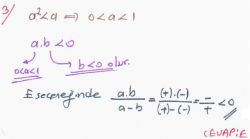 3/ a²<a ⟹ 0<a<1
a.b<0
0<a<1 b<0 olur.
E seçeneğinde a.b/a-b = (+).(-)/(+)-(-) = -/+ <0
CEVAP: E